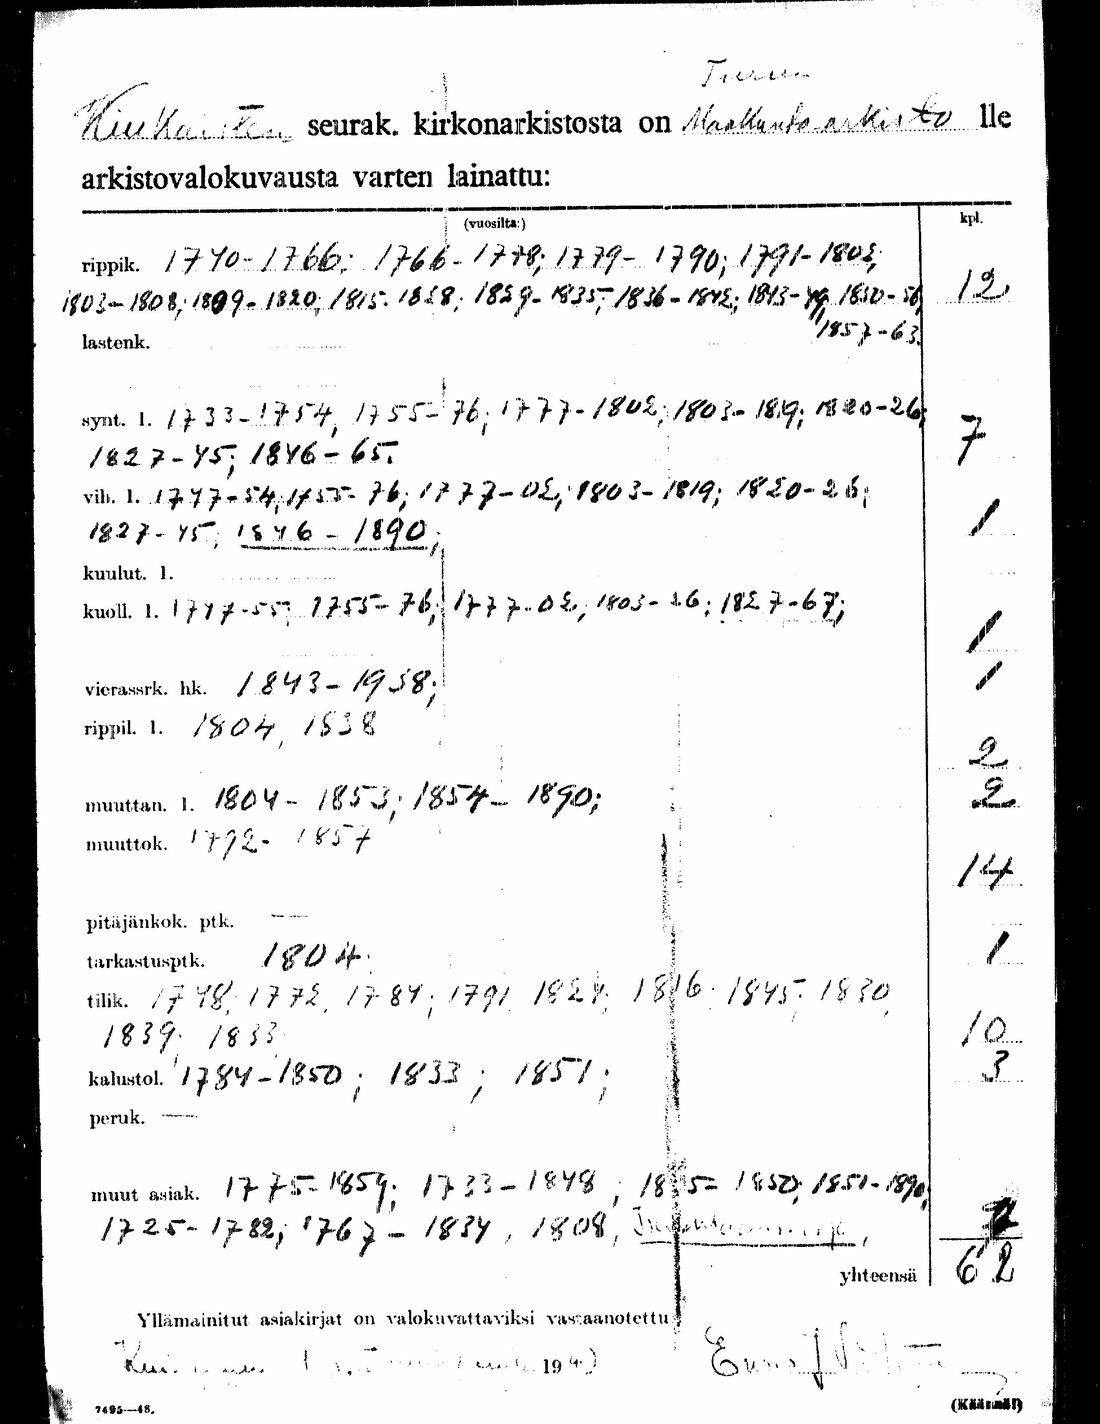 Turun
Kiukaisten seurak. kirkonarkistosta on Maakunda-arkisto lle
arkistovalokuvausta varten lainattu:
(vuosilta:) kpl.
rippik. 1740-1766; 1766-1778; 1779-1790; 1791-1802;
1803-1808; 1809-1820; 1815-1828; 1829-1835; 1836-1842; 1843-49, 1850-56, 12
1857-63.
lastenk.
synt. l. 1733-1754, 1755-76; 1777-1802; 1803-1819; 1820-26; 7
1827-45; 1846-65.
vih. l. 1747-54, 1755-76; 1777-02; 1803-1819; 1820-26;
1827-45; 1846-1890; 1
kuulut. l.
kuoll. l. 1747-55; 1755-76; 1777-02, 1803-26; 1827-67; 1
vierassrk. hk. 1843-1938; 1
rippil. l. 1804, 1838
2
muuttan. l. 1804-1853; 1854-1890; 2
muuttok. 1792-1857
14
pitäjänkok. ptk. —
tarkastusptk. 1804. 1
tilik. 1748, 1772, 1784; 1791, 1824; 1816; 1845; 1830,
1839; 1833 10
kalustol. 1784-1850; 1833; 1851; 3
peruk. —
muut asiak. 1775-1859; 1733-1848; 1850; 1851-1890;
1725-1782; 1767-1834, 1808,
yhteensä 62
Yllämainitut asiakirjat on valokuvattaviksi vastaanotettu
19
7495—48. (Käännä!)